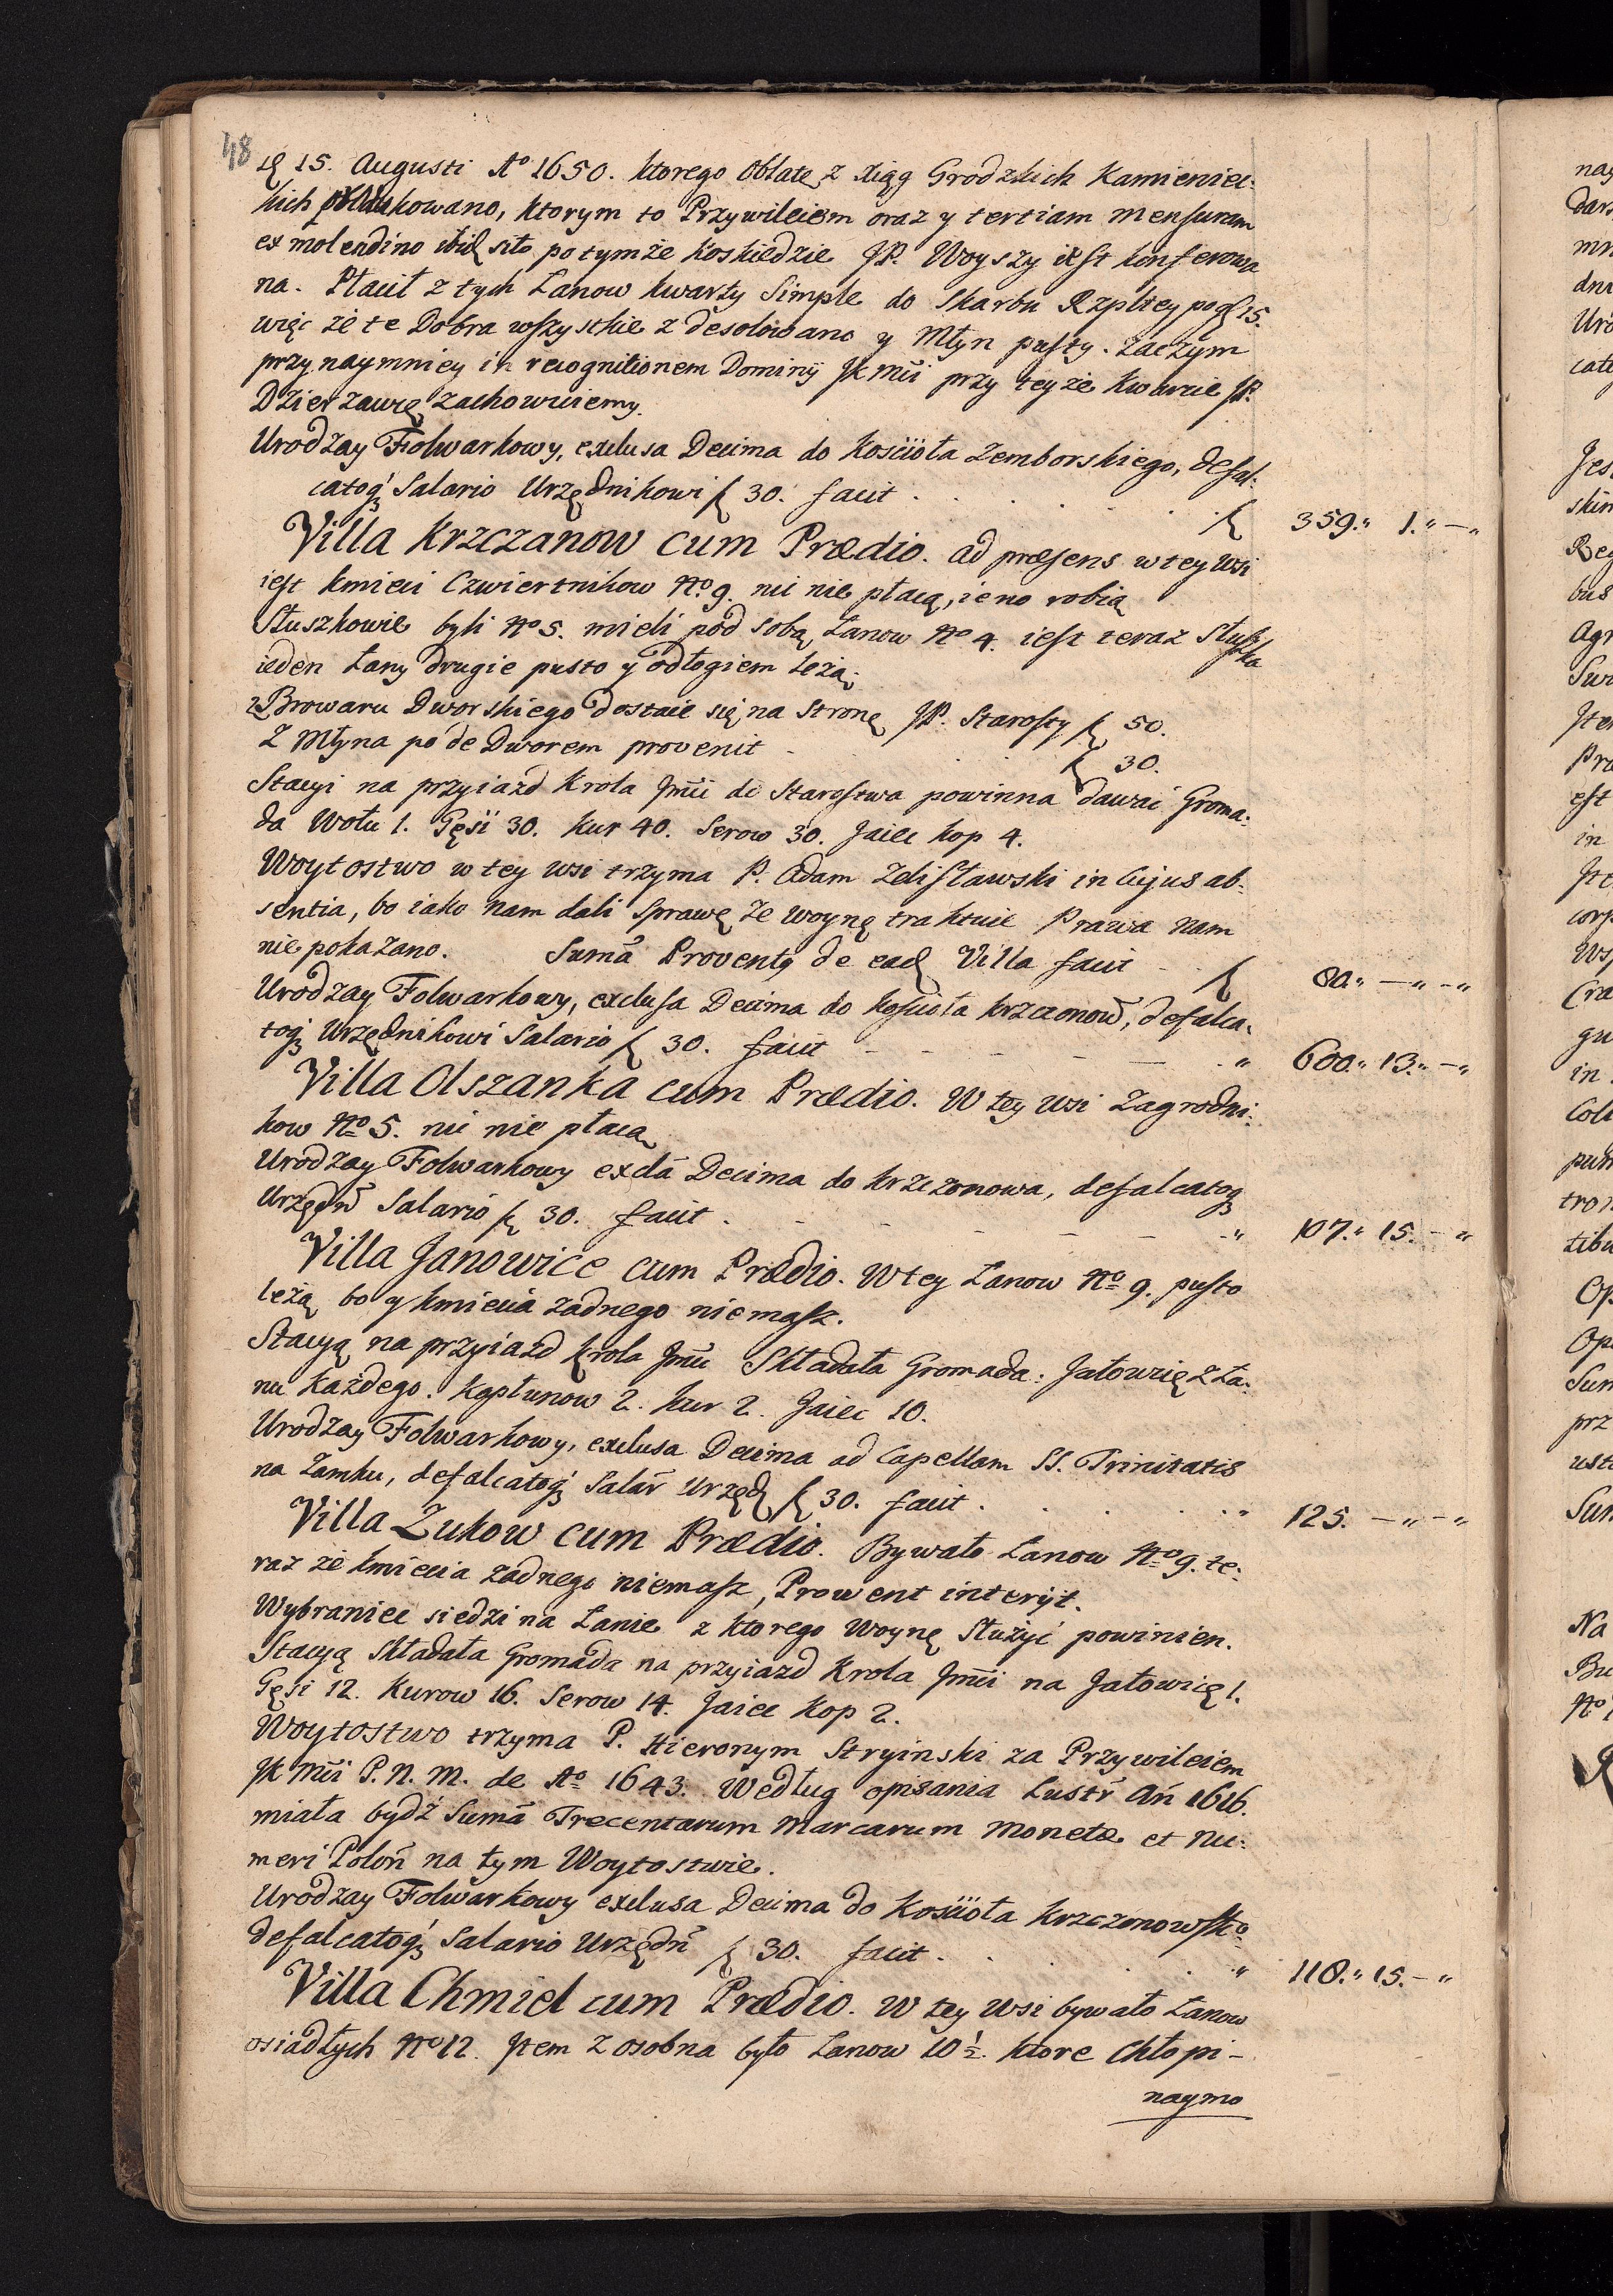 48
15. Augusti Aº 1650. ktorego Oblatę z xiąg Grodzkich Kamieniec:
kich produkowano, ktorym to Przywileiem oraz y tertiam mensuram
ex molendino ibid sito po tymże Koskiedzie JP. Woyszy iest konferowa
na. Płacił z tych Łanow kwarty Simple do Skarbu Rzpltey po 15.
więc że te Dobra wszystkie zdesolowano y Młyn pusty. zaczym
przynaymniey in recognitionem Dominij JKMci przy teyże kwarcie JP.
Dzierzawię zachowuiemy.
Urodzay Folwarkowy, exclusa Decima do Kościoła Zemborskiego, defal:
catoq3 Salario Urzędnikowi f 30. facit . . . . . f 359.,, 1.,, —,,
Villa Krzczanow cum Prædio. ad præsens w tey wsi
iest kmieci Czwiertnikow Nº 9. nic nie płacą, ieno robią
Służkowie byli Nº 5. mieli pod sobą Łanow Nº 4. iest teraz Służka
ieden Łany drugie pusto y odłogiem leżą.
z Browaru Dworskiego dostaie się na stronę JP. Starosty f 50.
Z Młyna pode Dworem provenit . . . f 30.
Stacyi na przyiazd Krola Jmći do Starostwa powinna dawać Groma:
da Wołu 1. Gęsi 30. Kur 40. Serow 30. Jaiec kop 4.
Woytostwo w tey wsi trzyma P. Adam Zelisławski in cujus ab:
sentia, bo iako nam dali sprawę że woynę traktuie Prawa nam
nie pokazano. Sumã Proventq de ead Villa facit . . f 80.,, —,, —,,
Urodzay Folwarkowy, exclusa Decima do Kościoła krzczonow, defalca:
toq3 Urzędnikowi Salario f 30. facit — — — — — ,, 600.,, 13.,, —,,
Villa Olszanka cum Prædio. W tey wsi Zagrodni:
kow Nº 5. nic nie płacą
Urodzay Folwarkowy exclã Decima do krzczonowa, defalcatoq3
Urzędñ Salario f 30. facit . — — — — — ,, 107.,, 15. — ,,
Villa Janowice cum Prædio. W tey Łanow Nº 9. pusto
leżą bo y kmiecia zadnego niemasz.
Stacyą na przyiazd Krola Jmći Składała Gromada: Jałowicę z Ła:
nu każdego. Kapłunow 2. Kur 2. Jaiec 10.
Urodzay Folwarkowy, exclusa Decima ad Capellam SS. Trinitatis
na Zamku, defalcatoq3 Salar̃ Urzęd f 30. facit . . . . ,, 125. —,, —,,
Villa Zukow cum Prædio. Bywało Łanow Nº 9. te:
raz że kmiecia zadnego niemasz, Prowent interijt.
Wybraniec siedzi na Łanie z ktorego Woynę służyć powinien.
Stacyą składała Gromada na przyiazd Krola Jmći na Jałowicę 1.
Gęsi 12. Kurow 16. Serow 14. Jaiec kop 2.
Woytostwo trzyma P. Hieronym Stryinski za Przywileiem
JKMći P. N. M. de Aº 1643. Według opisania Lustr̃ Añ 1616.
miała bydź Sumã Trecentarum Marcarum Monetæ et Nu:
meri Poloñ na tym Woytostwie.
Urodzay Folwarkowy exclusa Decima do Kościoła krzczonowsko
defalcatoq3 Salario Urzędñ f 30. facit . . . . ,, 118.,, 15. — ,,
Villa Chmiel cum Prædio. W tey wsi bywało Łanow
osiadłych Nº 12. Item z osobna było Łanow 10½. ktore Chłopi —
naymo